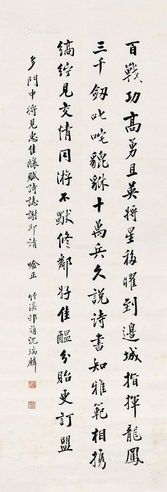 百戰功高勇且英將星夜曜到邊城指揮龍鳳
三千劒叱咤貔貅十萬兵久說詩書知雅範相携
縞紵見交情同游不獸修鄰好佳醖分貽更訂盟
多門中將見惠佳釀賦詩誌謝即請 哈正
竹溪 沈瑞麟